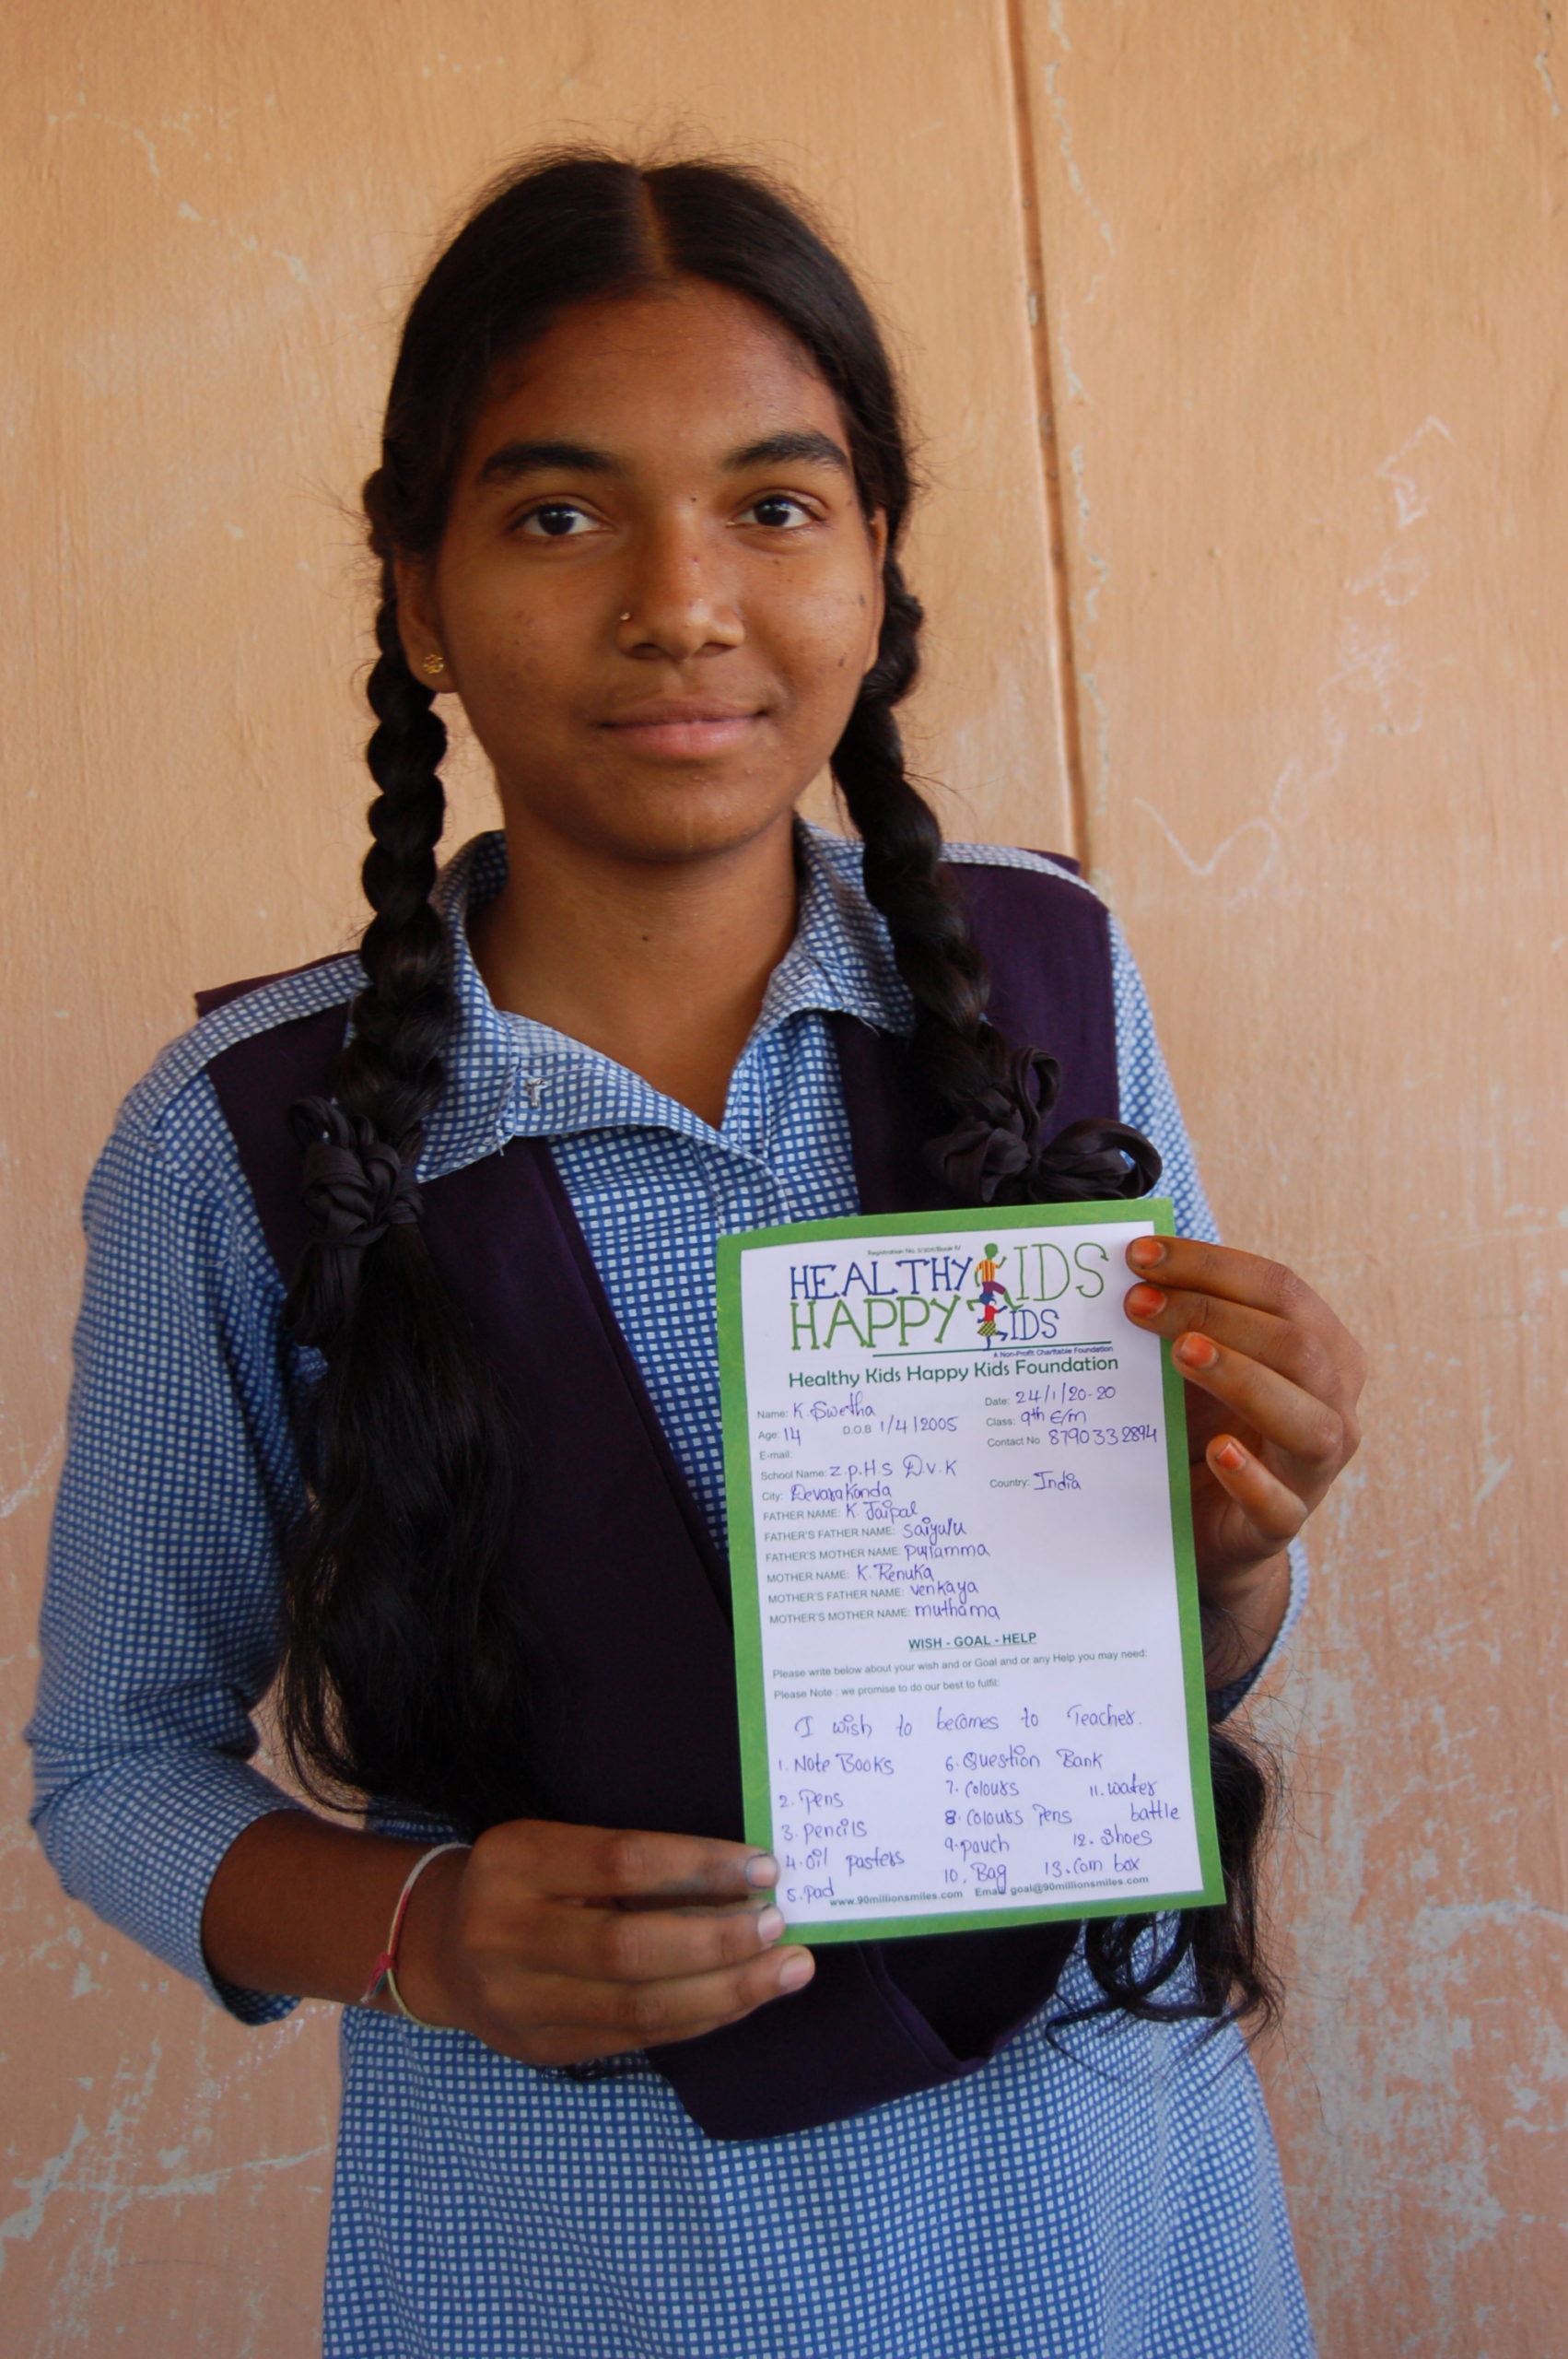 Registration No. 5/2011/Book IV
HEALTHY KIDS
HAPPY KIDS
A Non-Profit Charitable Foundation
Healthy Kids Happy Kids Foundation
Name: K. Swetha Date: 24/1/20-20
Age: 14 D.O.B 1/4/2005 Class: 9th E/m
E-mail: Contact No 8790332894
School Name: Z.p.H.S D.v.K
City: Devarakonda Country: India
FATHER NAME: K. Jaipal
FATHER'S FATHER NAME: Saiyulu
FATHER'S MOTHER NAME: pullamma
MOTHER NAME: K. Renuka
MOTHER'S FATHER NAME: venkaya
MOTHER'S MOTHER NAME: muthama
WISH - GOAL - HELP
Please write below about your wish and or Goal and or any Help you may need:
Please Note : we promise to do our best to fulfil:
I wish to becomes to Teacher.
1. Note Books 6. Question Bank
2. Pens 7. Colours 11. water
3. pencils 8. Colours Pens battle
4. oil pasters 9. pouch 12. Shoes
5. Pad 10. Bag 13. Com box
www.90millionsmiles.com Email: goal@90millionsmiles.com